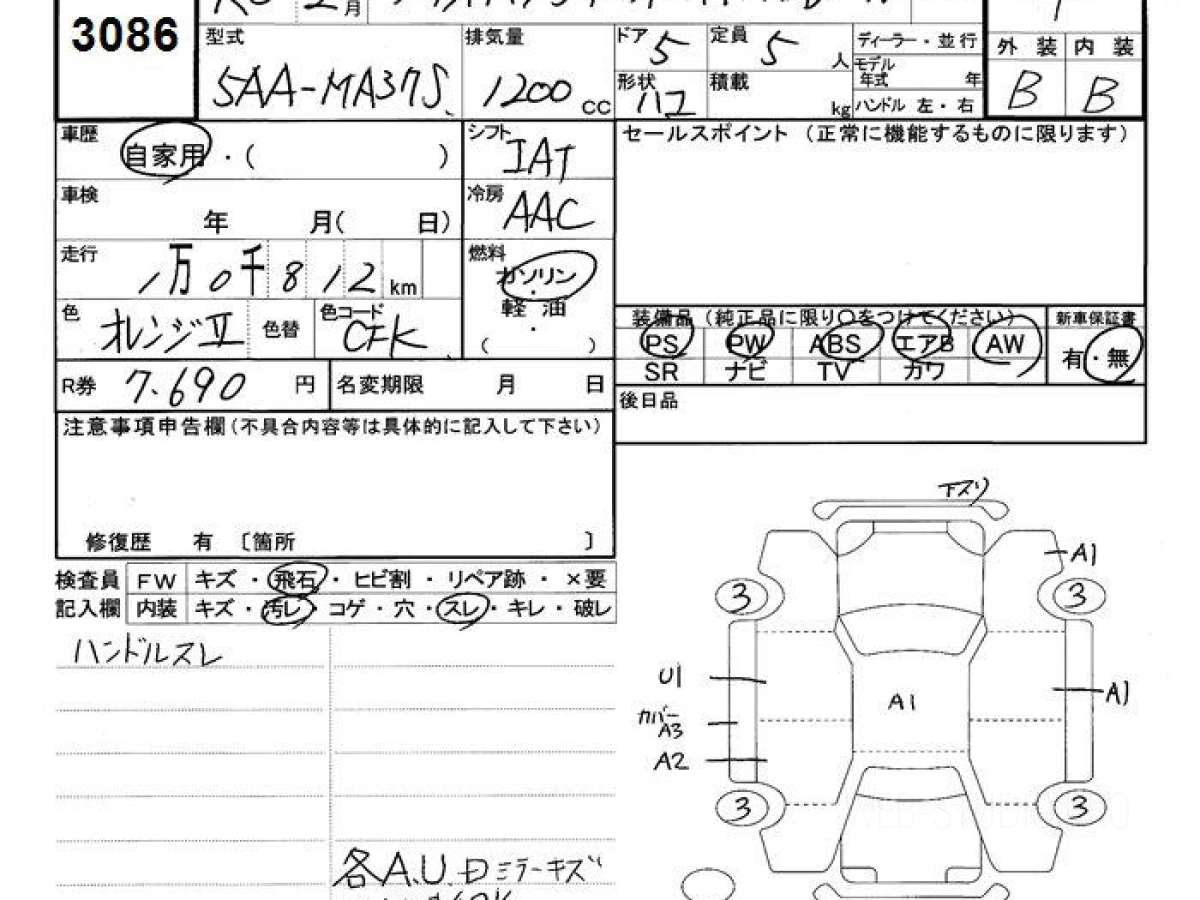 3086
型式
5AA-MA37S
排気量
1200 cc
ドア 5
定員 5 人
ディーラー・並行
モデル年式 年
外装 内装
形状 ハコ
積載 kg
ハンドル 左・右
B B
車歴 自家用・( )
シフト IAT
セールスポイント (正常に機能するものに限ります)
車検 年 月( 日)
冷房 AAC
走行 1万0千812km
燃料 ガソリン・軽油・( )
色 オレンジⅡ 色替 色コード CFK
装備品 (純正品に限り○をつけてください) 新車保証書
PS PW ABS エアB AW 有・無
SR ナビ TV カワ
R券 7.690 円 名変期限 月 日
後日品
注意事項申告欄(不具合内容等は具体的に記入して下さい)
修復歴 有 〔箇所 〕
検査員 FW キズ・飛石・ヒビ割・リペア跡・×要
記入欄 内装 キズ・汚レ・コゲ・穴・スレ・キレ・破レ
ハンドルスレ
各A.U.
ミラーキズ
下スリ
A1
3 3
U1
A1
A1
カバー
A3
A2
3 3